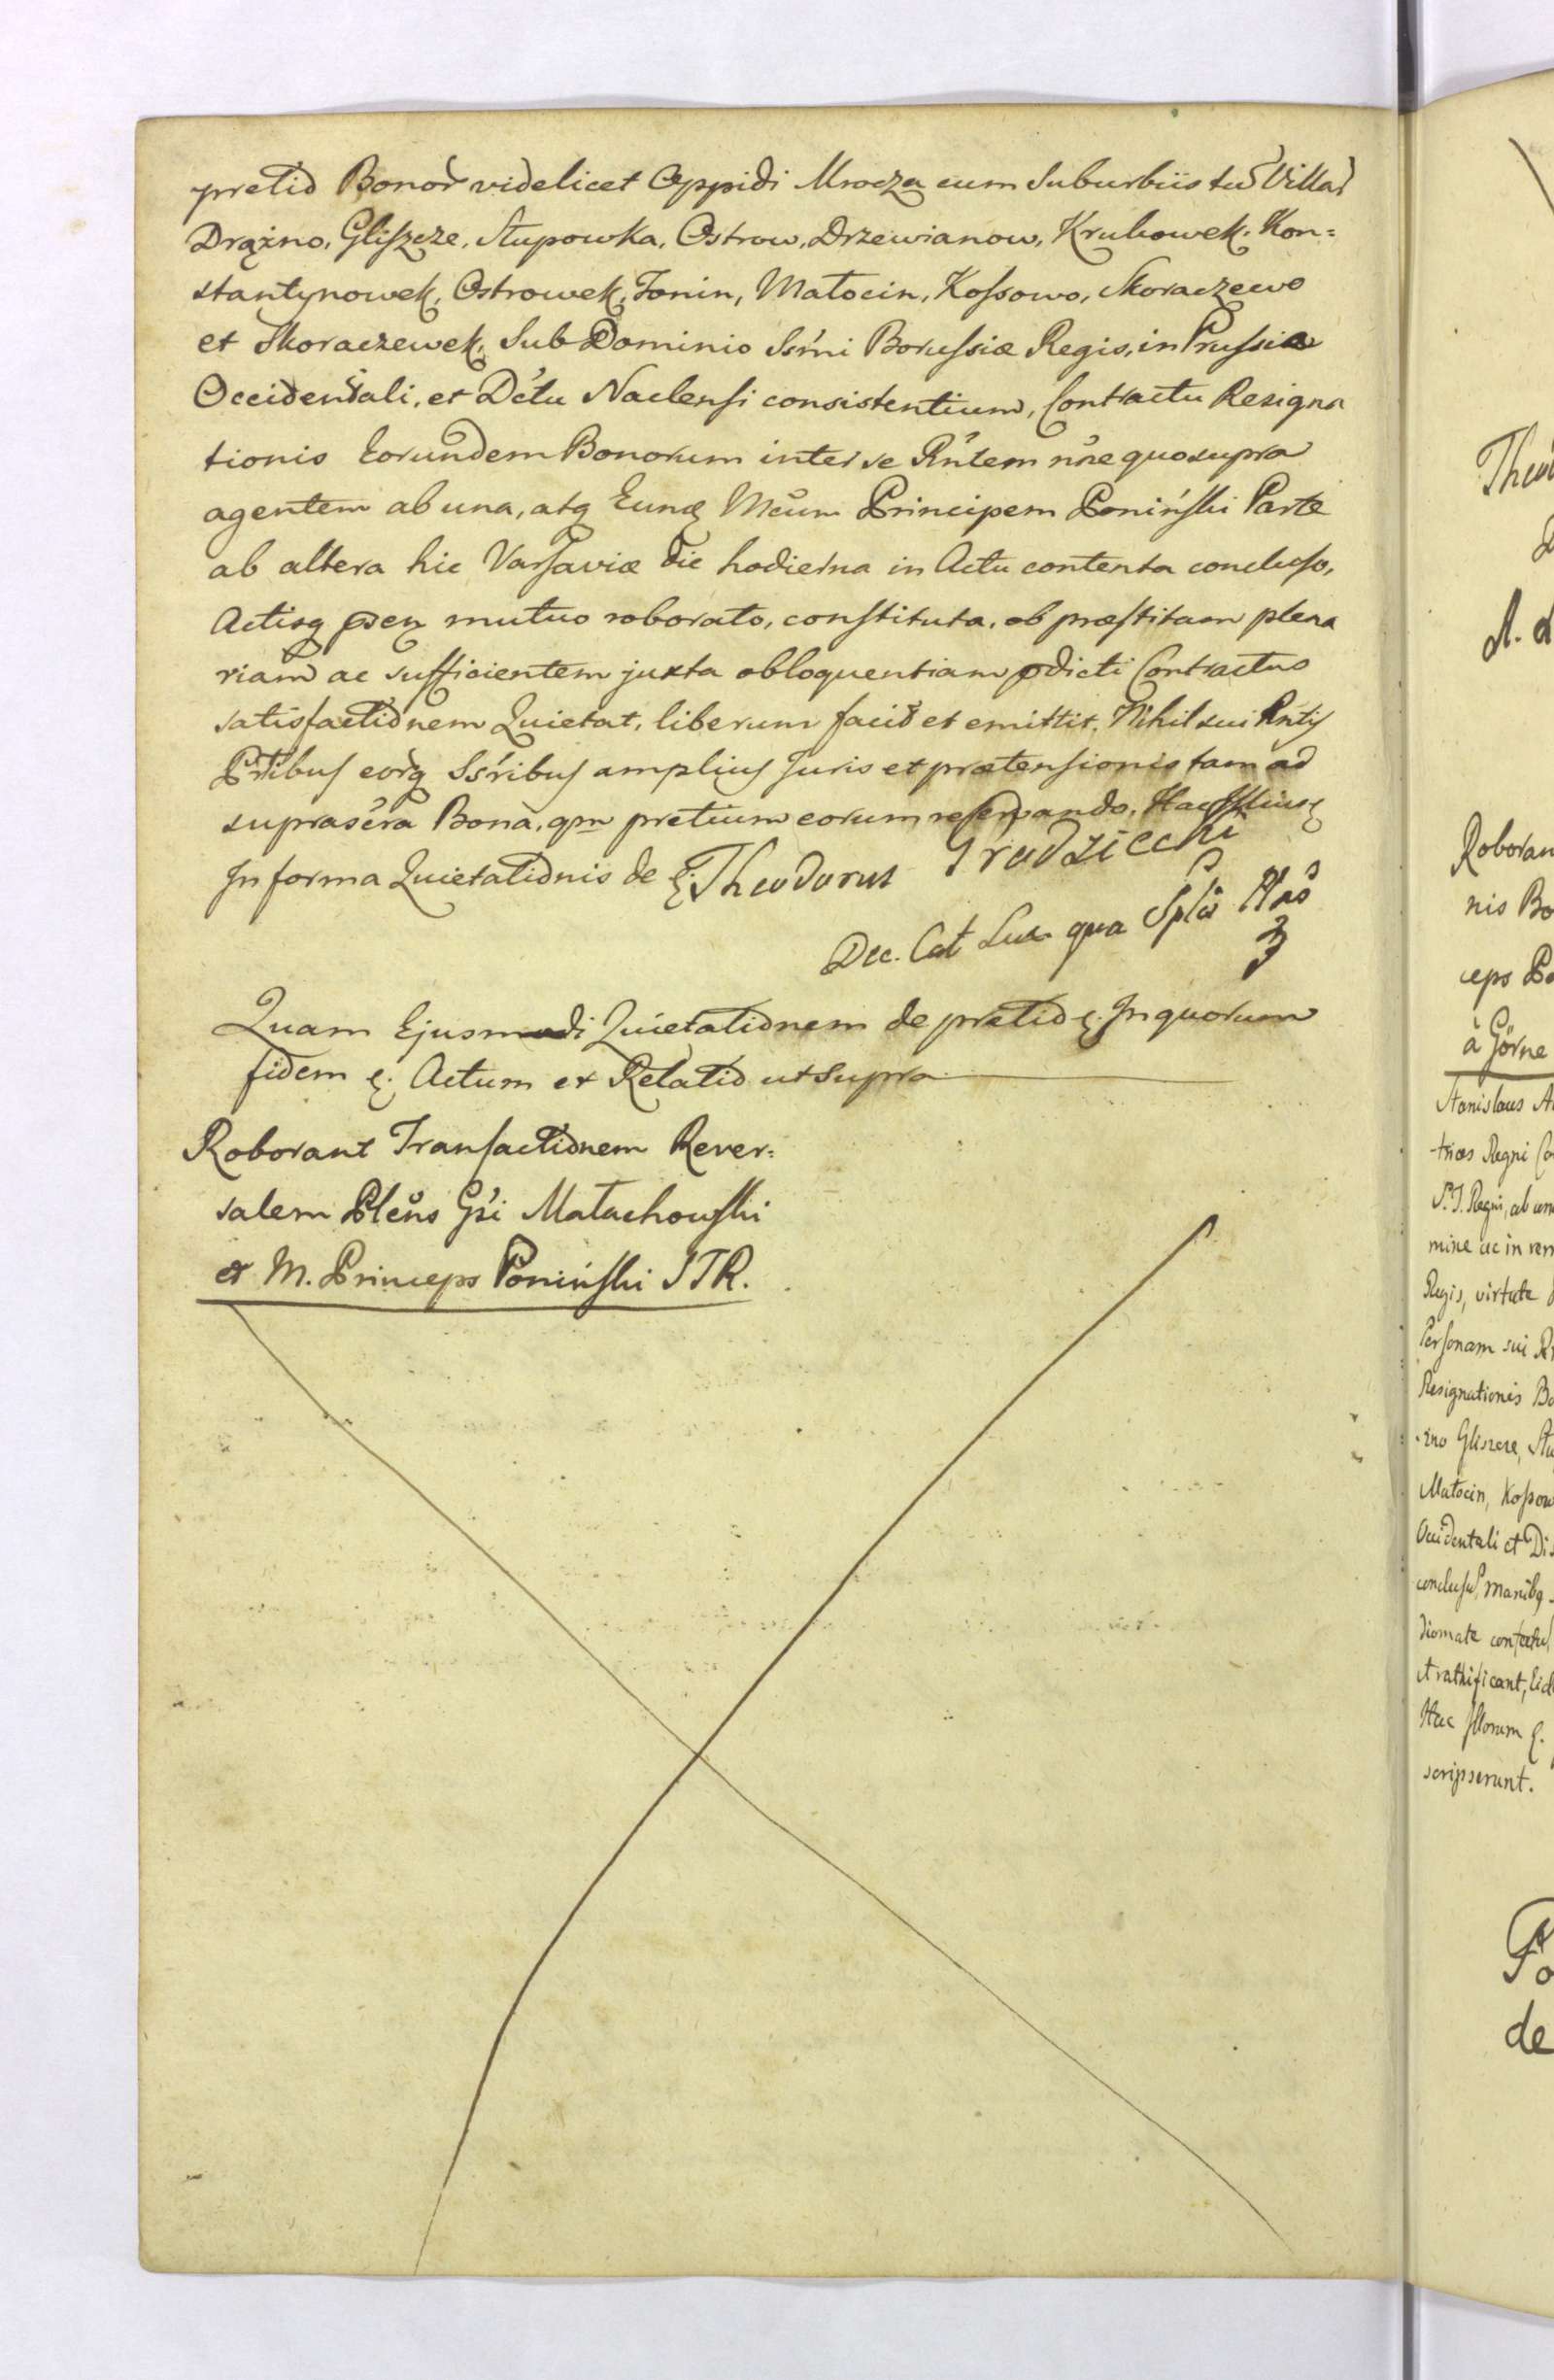 pretio Bonor videlicet Oppidi Mrocza cum Suburbiis tu Villar
Drązno, Gliszcze, Słupowka, Ostrow, Drzewianow, Krukowek, Kon=
stantynowek, Ostrowek, Jonin, Matocin, Kossowo, Skoraczewo
et Skoraczewek, Sub Dominio Ssmi Borussiæ Regis, in Prussia
Occidentali, et Dctu Naclensi consistentium, Contractu Resigna
tionis Eorundem Bonorum inter se Rntem nne quo supra
agentem ab una, atq Eund Mcum Principem Poniński Parte
ab altera hic Varsaviæ die hodierna in Actu contenta concluso,
Actisq mutuo roborato, constituta, ob præstitam plena
riam ac sufficientem juxta obloquentiam pdicti Contractus
satisfactionem Quietat, liberum facit et emittit. Nihil sui Rntis
Prtibus eorq Ssribus amplius Juris et prætensionis tam ad
suprasera Bona, qm pretium eorum reservando. Hac Illius
In forma Quietationis de Theodorus Grudziecki
Dec. Cat qua Splis Plnō
Quam Ejusmodi Quietationem de pretio In quorum
fidem Actum et Relatio ut supra
Roborant Transactionem Rever=
salem Plens Gsi Małachowski
et M. Princeps Poniński STR.
Roboran
nis Bo
ceps Po
à Görne
Stanislaus A
trices Regni
mine ac in rem
Regis, virtute
Personam sui R
Resignationis Bo
zno Gliszcze, Słu
Matocin, Kossow
Occidentali et Dis
conclusu, manibq
diomate confectu
et rathificant, Eid
Hac Illorum
scripserunt.
de